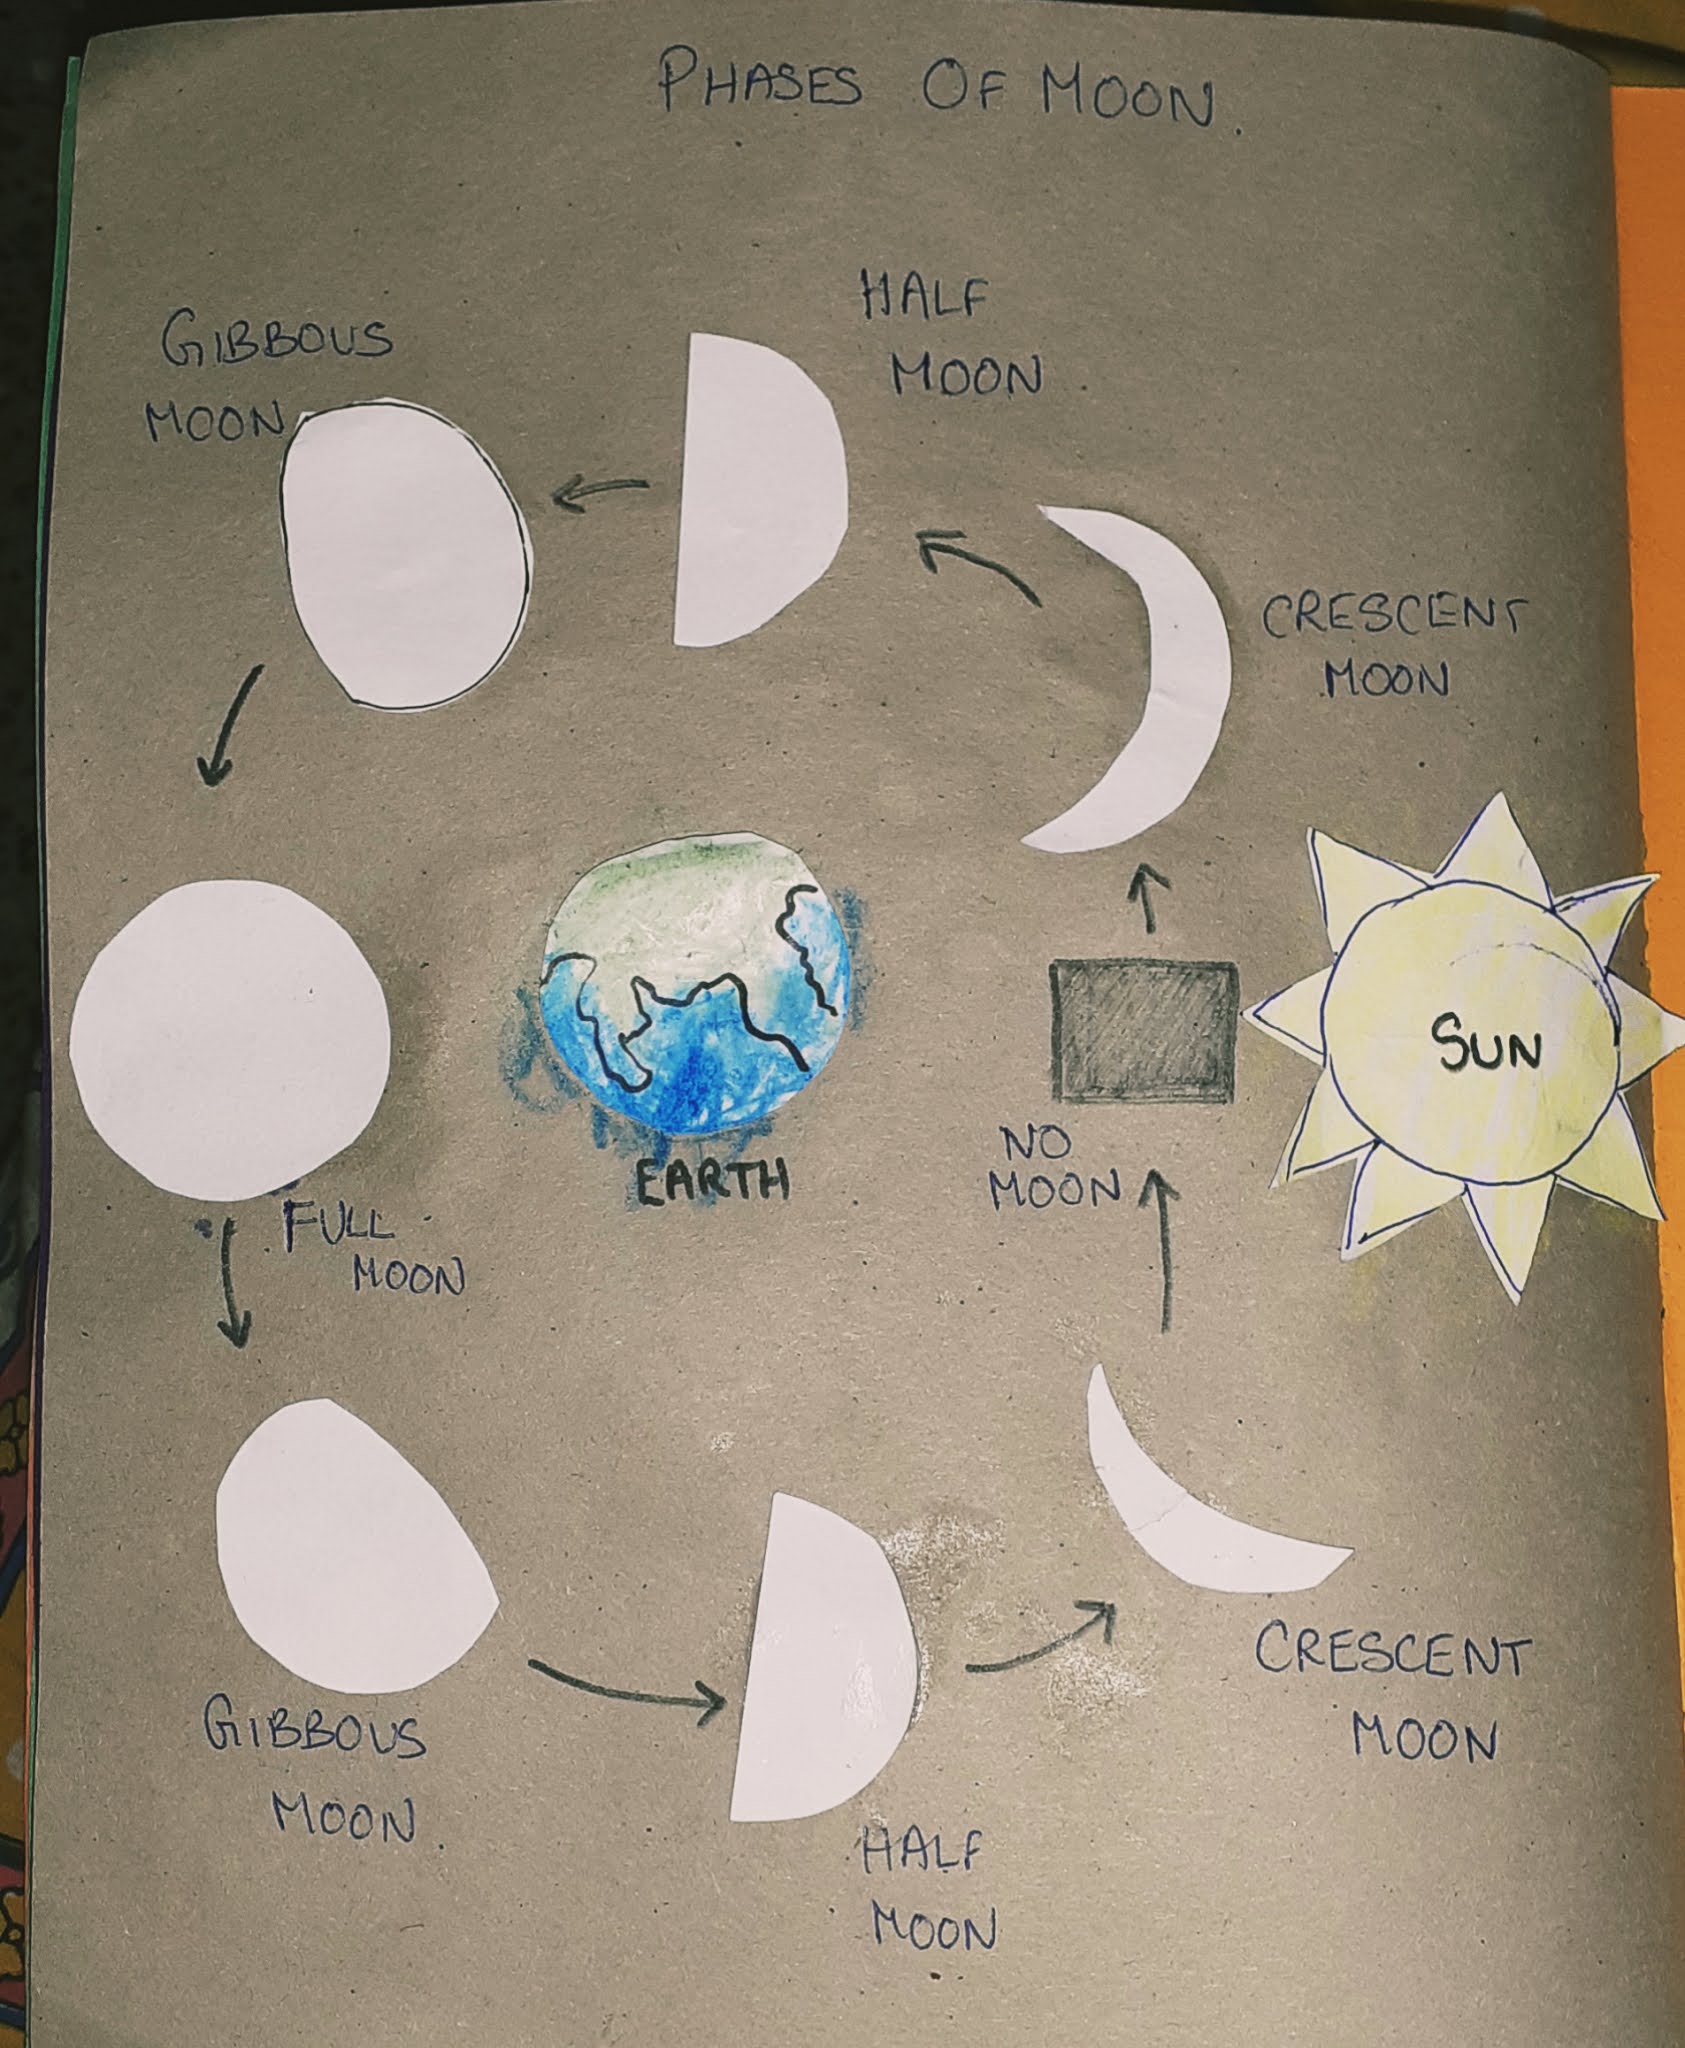 PHASES OF MOON.
HALF
MOON
GIBBOUS
MOON
CRESCENT
MOON
SUN
NO
MOON
EARTH
FULL
MOON
CRESCENT
MOON
GIBBOUS
MOON
HALF
MOON